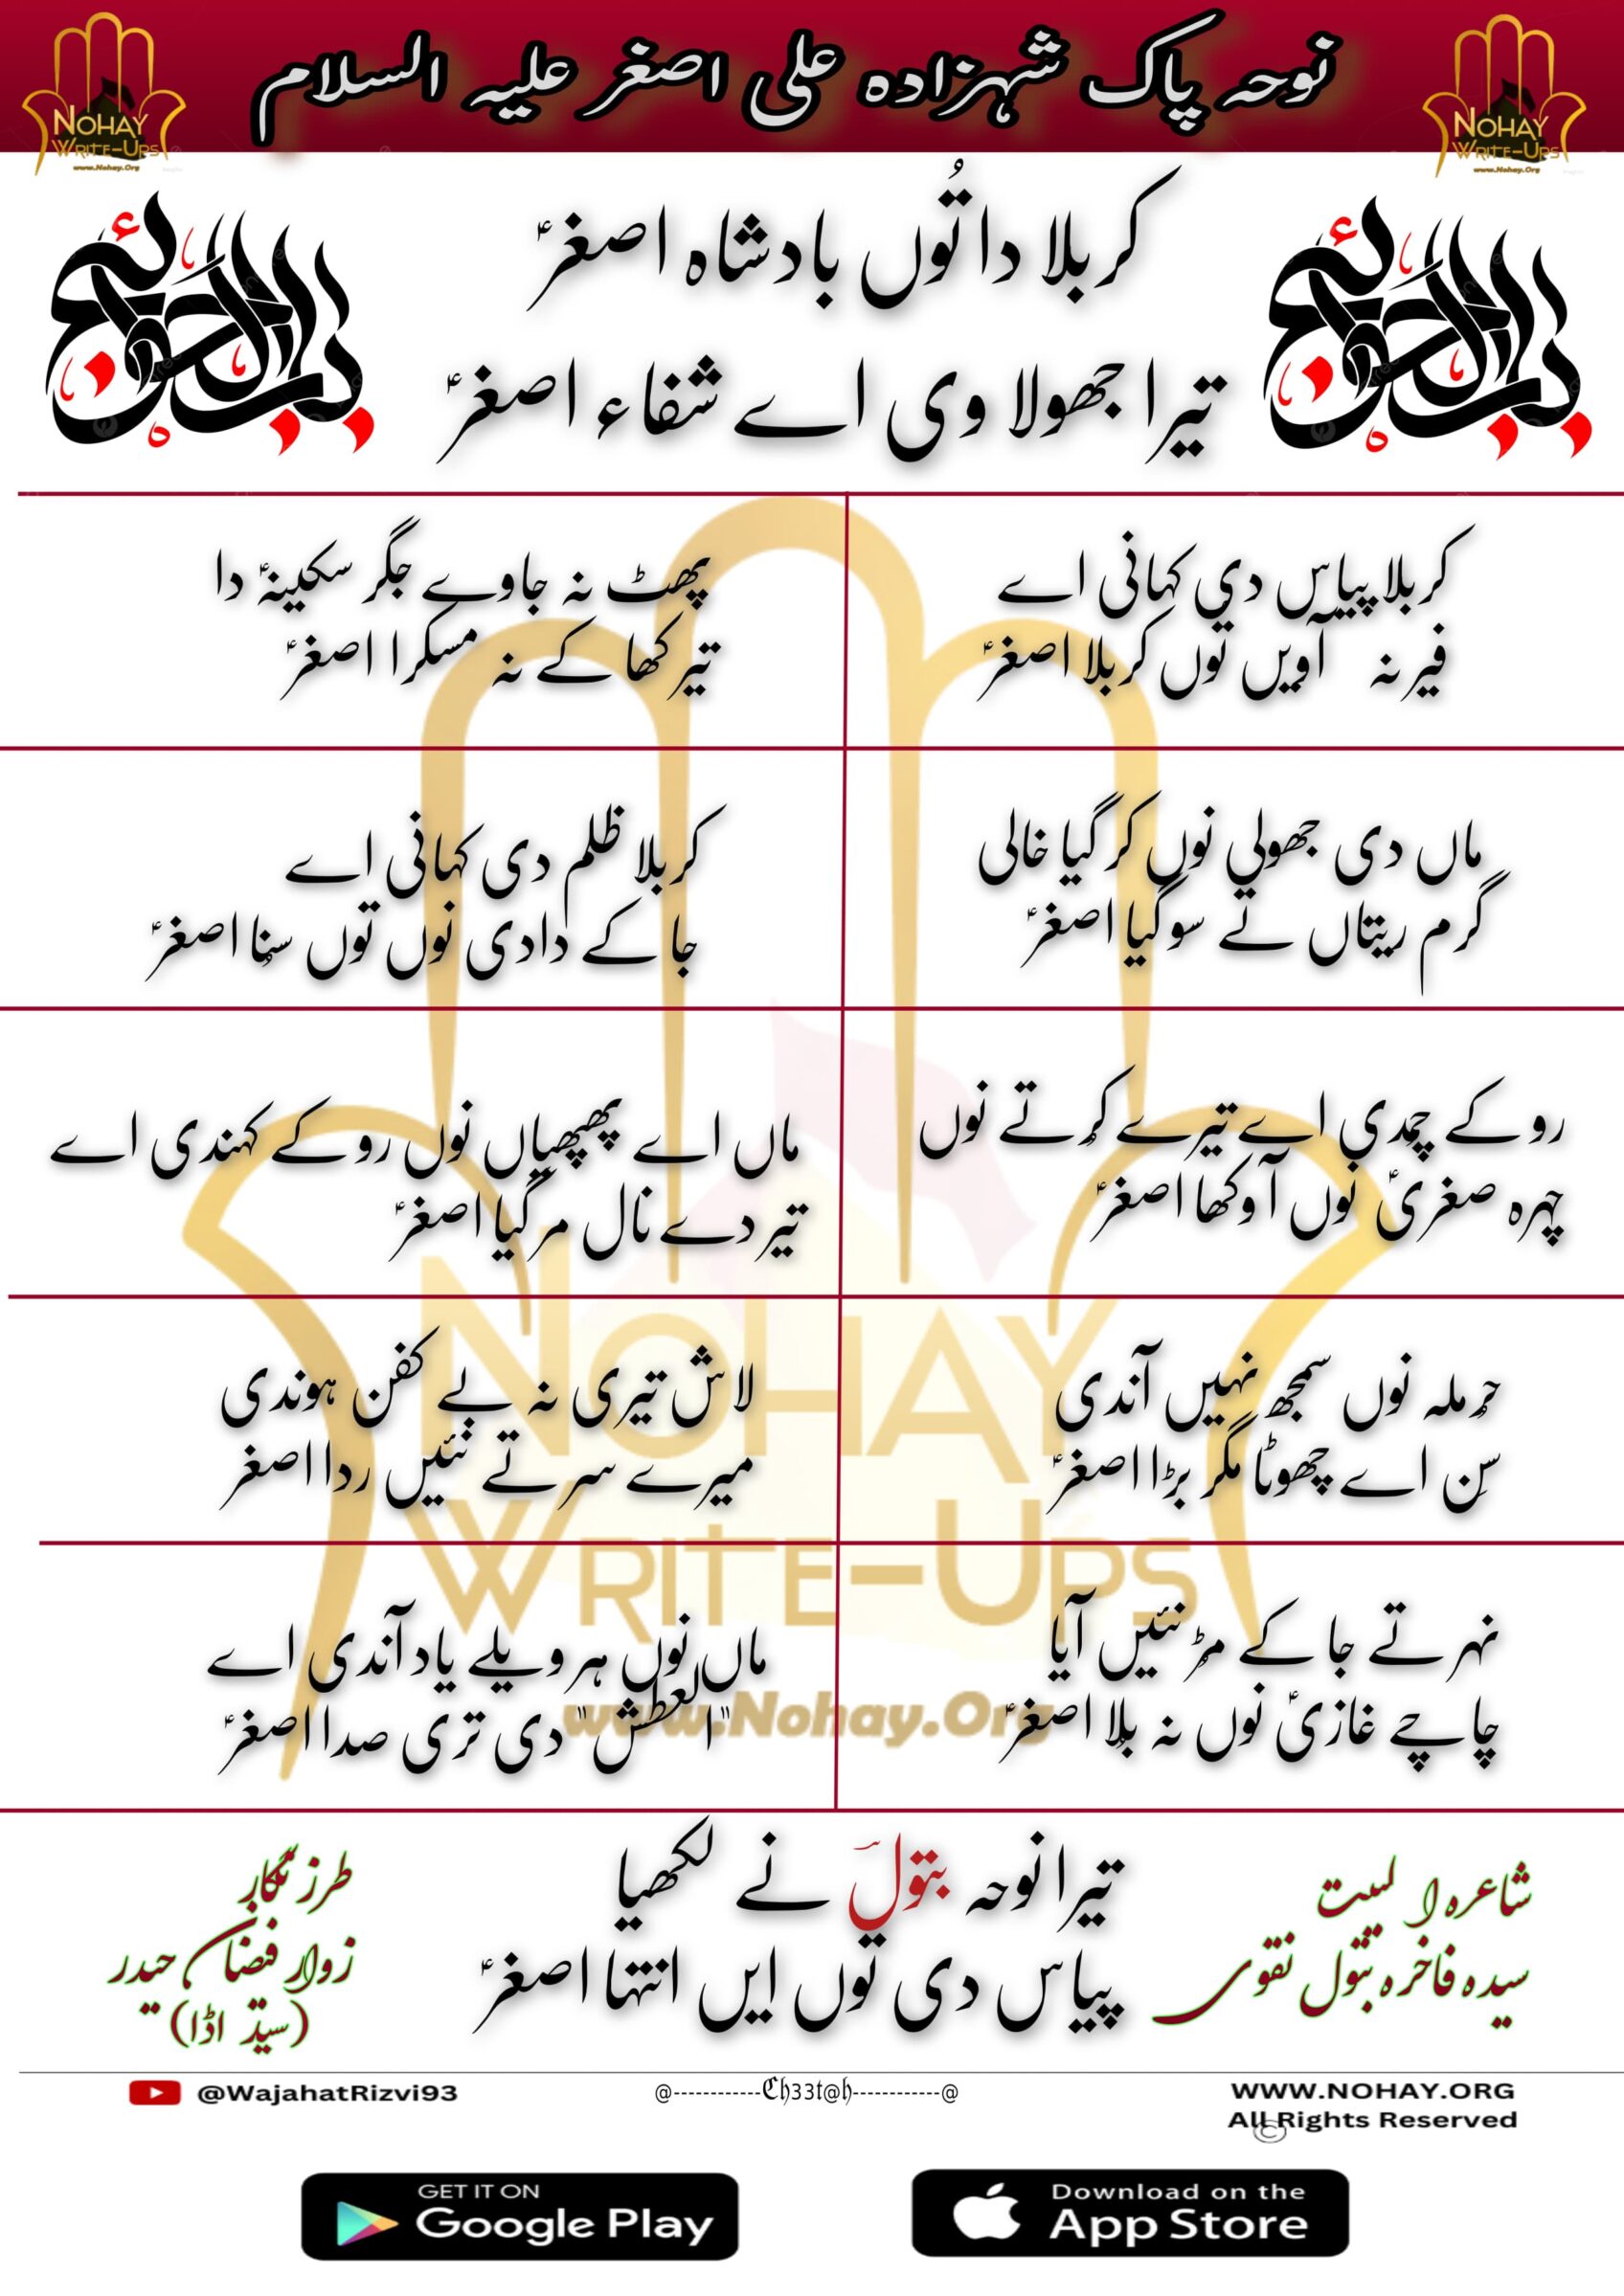 نوحہ پاک شہزادہ علی اصغر علیہ السلام
NOHAY
WRITE-UPS
www.Nohay.Org
NOHAY
WRITE-UPS
www.Nohay.Org
باب الحوائج
باب الحوائج
کربلا دا تُوں بادشاہ اصغرؑ
تیرا جھولا وی اے شفاء اصغرؑ
کربلا پیاس دی کہانی اے
فیر نہ آویں توں کربلا اصغرؑ
پھٹ نہ جاوے جگر سکینہؑ دا
تیر کھا کے نہ مسکرا اصغرؑ
ماں دی جھولی نوں کر گیا خالی
گرم ریتاں تے سو گیا اصغرؑ
کربلا ظلم دی کہانی اے
جا کے دادی نوں توں سنا اصغرؑ
رو کے چمدی اے تیرے کُرتے نوں
چہرہ صغریٰؑ نوں آ وکھا اصغرؑ
ماں اے پھپھیاں نوں رو کے کہندی اے
تیر دے نال مر گیا اصغرؑ
حرملہ نوں سمجھ نہیں آندی
سِن اے چھوٹا مگر بڑا اصغرؑ
لاش تیری نہ بے کفن ہوندی
میرے سر تے نئیں ردا اصغر
نہر تے جا کے مڑ نئیں آیا
چاچے غازیؑ نوں نہ بلا اصغرؑ
ماں نوں ہر ویلے یاد آندی اے
"العطش" دی تری صدا اصغرؑ
NOHAY
WRITE-UPS
www.Nohay.Org
تیرا نوحہ بتولؔ نے لکھیا
پیاس دی توں ایں انتہا اصغرؑ
سیدہ فاخرہ بتول نقوی
طرز نگار
زوار فیضان حیدر
(سیّد اڈا)
@WajahatRizvi93
@------------Ch33t@h------------@
WWW.NOHAY.ORG
All Rights Reserved
©
GET IT ON
Google Play
Download on the
App Store